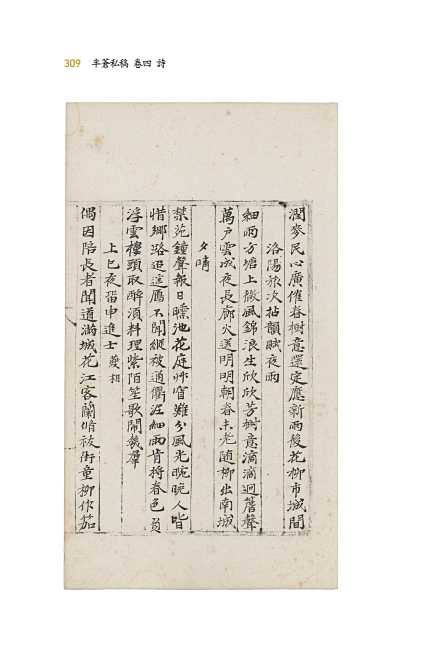 309 半蒼私稿 卷四 詩
潤麥民心廣催春樹意還定應新雨後花柳市城間
洛陽旅次拈韻賦夜雨
細雨方塘上微風錦浪生欣欣芳樹意滴滴迴簷聲
萬戶雲成夜長廊火送明明朝春未老随柳出南城
夕晴
禁苑鐘聲報日曛池花庭艸窅難分風光晼晚人皆
惜鄉路迢遞鴈不聞縱被通衢泥細雨肯將春色負
浮雲樓頭取醉須料理紫陌笙歌鬧幾羣
上巳夜留申進士 相
偶因陪長者聞道滿城花江客蘭脩祓街童柳作笳